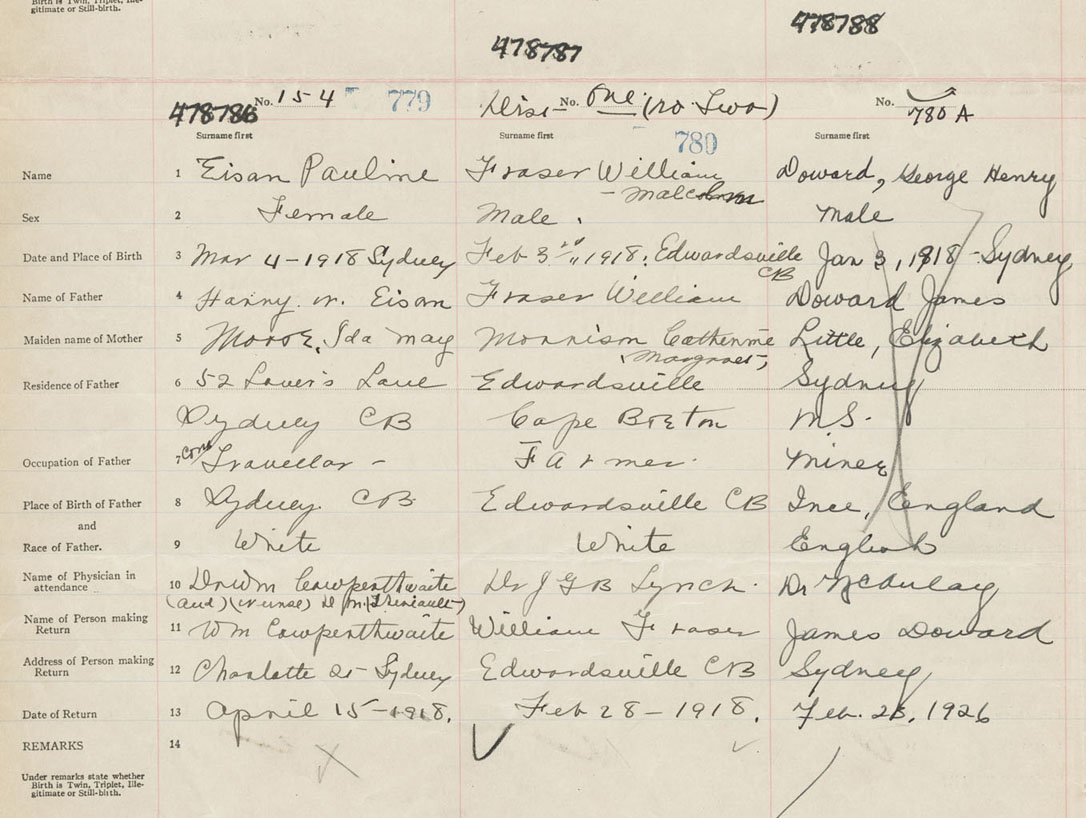 Birth is Twin, Triplet, Ille-
gitimate or Still-birth.
478786 478787 478788
No. 154 779 Dist No. One (No Two) No. 780 A
Surname first Surname first 780 Surname first
Name 1 Eisan Pauline Fraser William Doward, George Henry
- Malcolm
Sex 2 Female Male. Male
Date and Place of Birth 3 Mar 4-1918 Sydney Feb 3rd, 1918. Edwardsville CB Jan 3, 1918 - Sydney
Name of Father 4 Harry W. Eisan Fraser William Doward James
Maiden name of Mother 5 Moore, Ida May Morrison Catherine Little, Elizabeth
Margaret,
Residence of Father 6 52 Lover's Lane Edwardsville Sydney
Sydney CB Cape Breton N.S.
Occupation of Father 7 Com Travellor - Farmer. Miner
Place of Birth of Father 8 Sydney CB Edwardsville CB Ince, England
and
Race of Father. 9 White White English
Name of Physician in
attendance 10 Dr Wm Cowperthwaite Dr J G B Lynch. Dr McAulay
(and) (nurse)
Name of Person making
Return 11 Wm Cowperthwaite William Fraser James Doward
Address of Person making
Return 12 Charlotte St Sydney Edwardsville CB Sydney
Date of Return 13 April 15-1918. Feb 28-1918. Feb. 23, 1926
REMARKS 14
Under remarks state whether
Birth is Twin, Triplet, Ille-
gitimate or Still-birth.